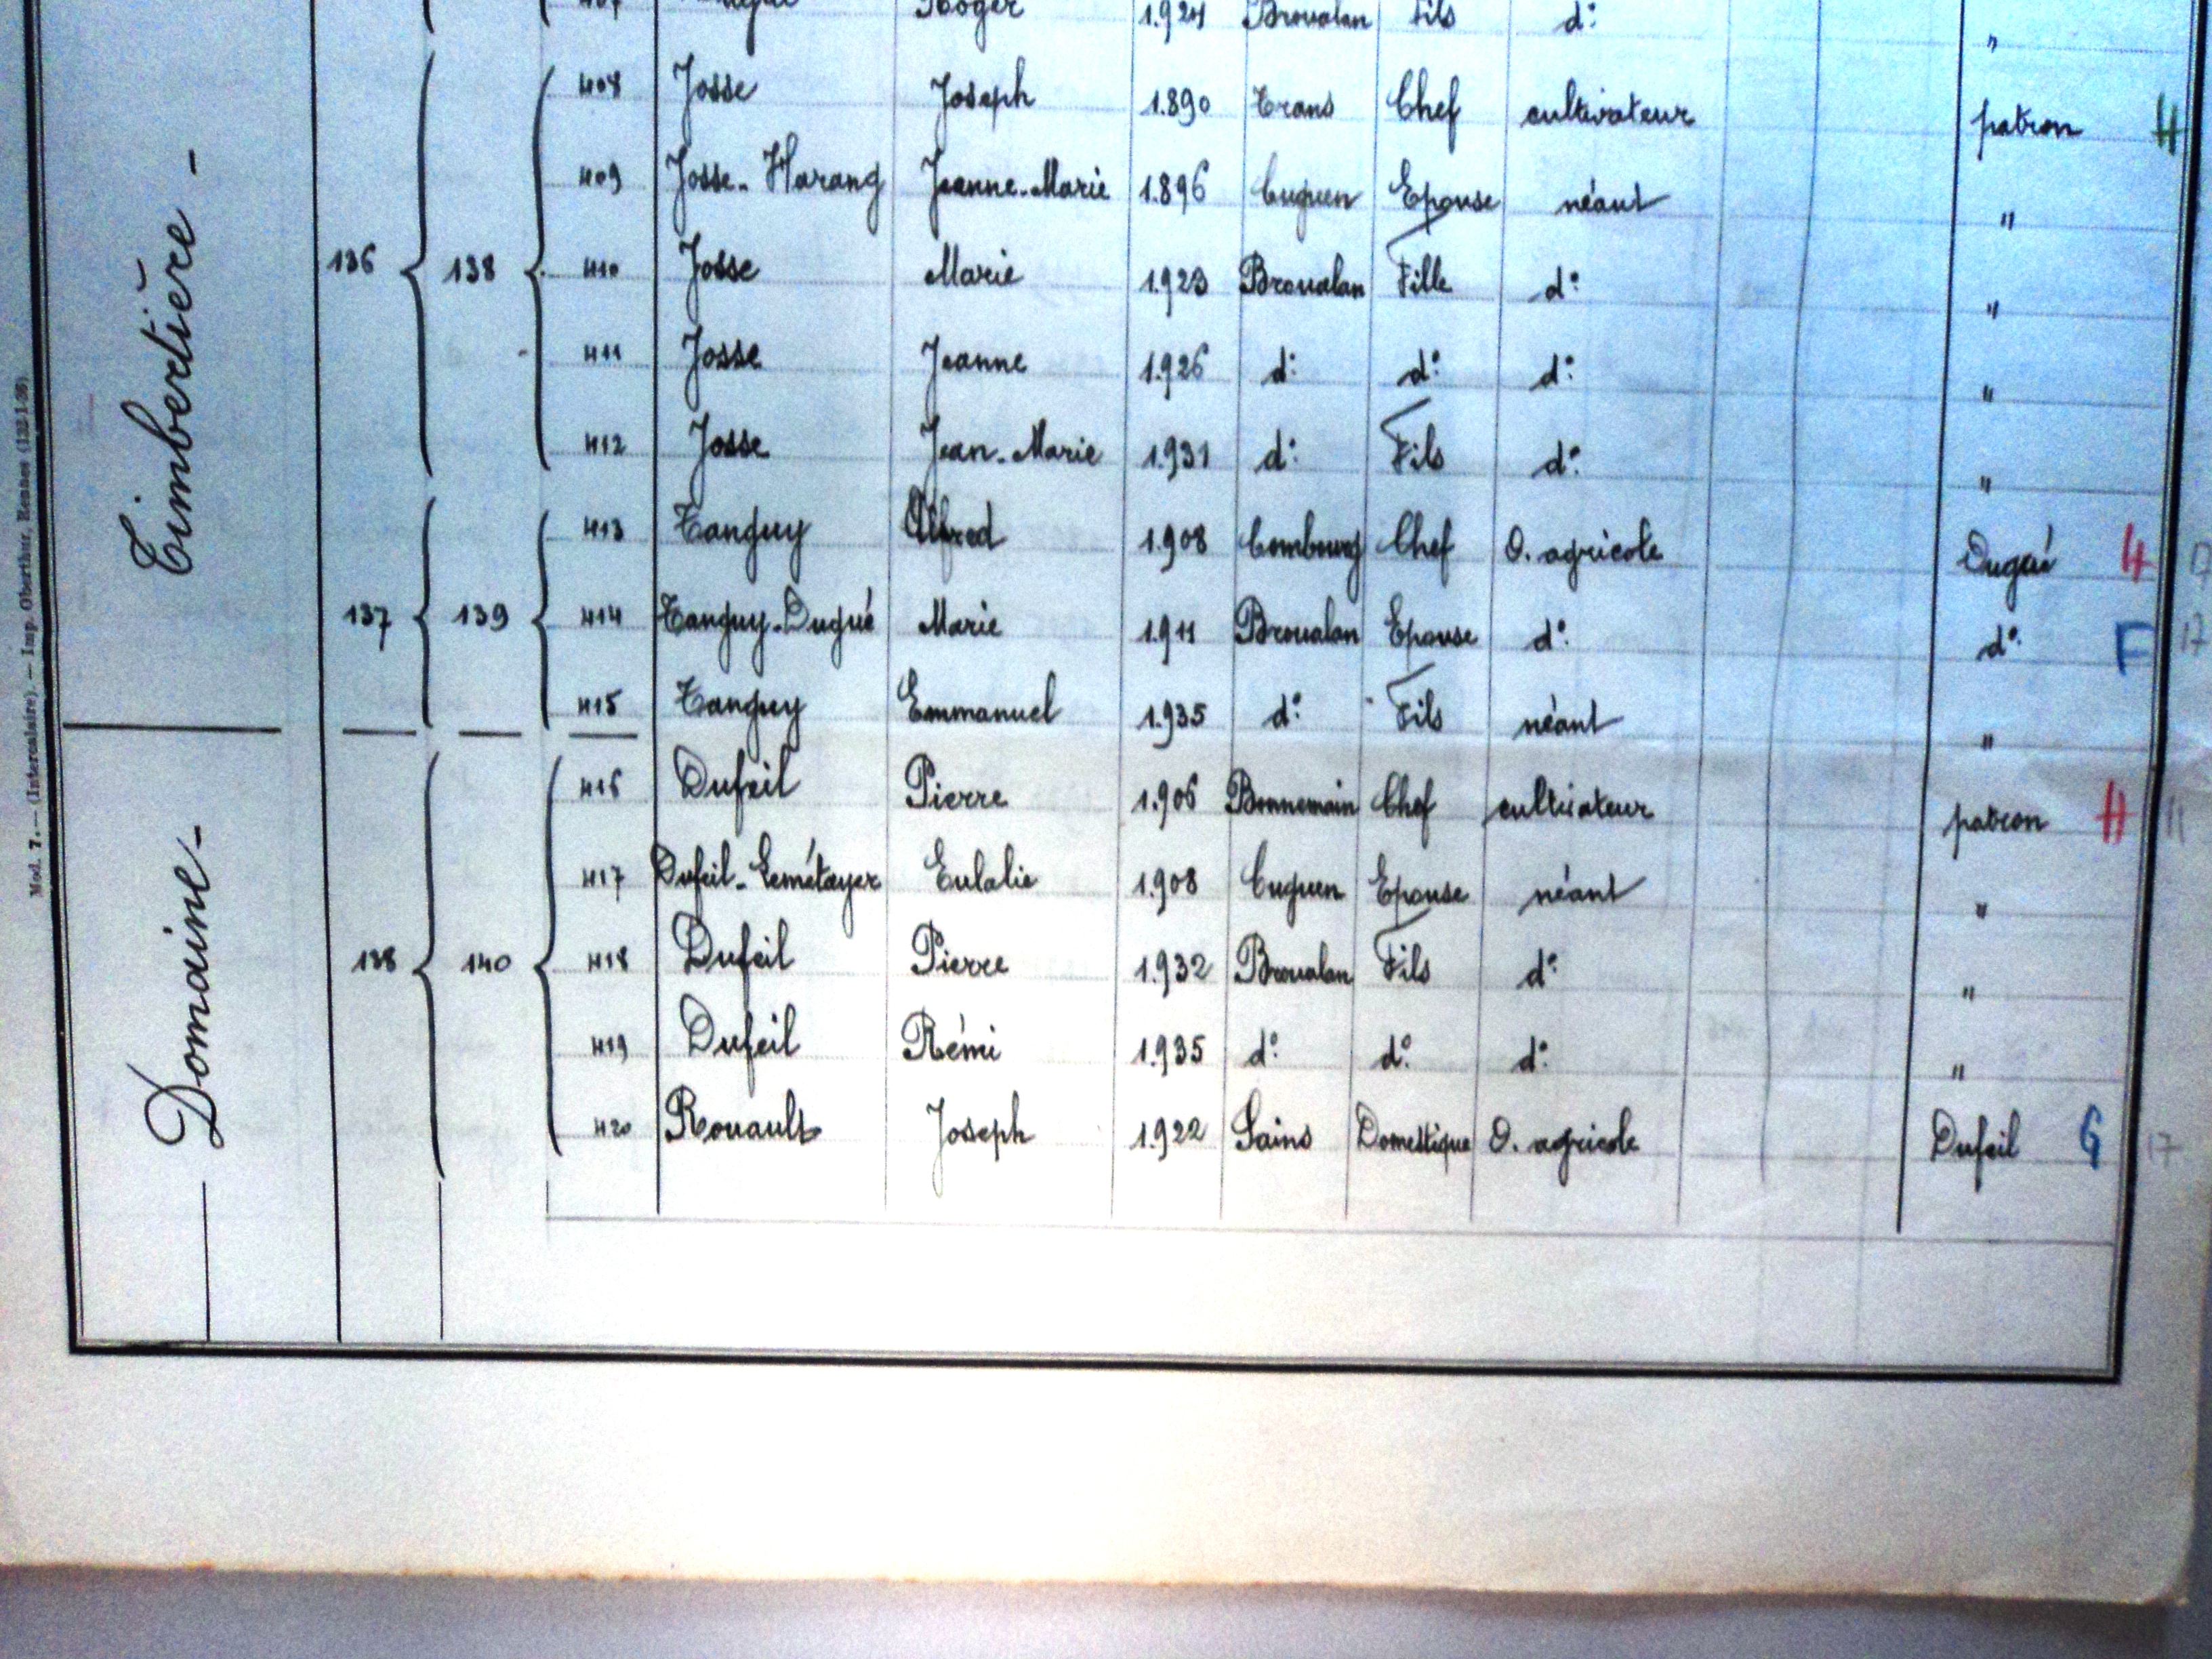 Roger 1.924 Broualan Fils d° "
408 Josse Joseph 1.890 Trans Chef cultivateur patron H
409 Josse-Harang Jeanne-Marie 1.896 Cuguen Epouse néant "
Timbertière -
136 138 410 Josse Marie 1.923 Broualan Fille d° "
411 Josse Jeanne 1.926 d° d° d° "
412 Josse Jean-Marie 1.931 d° Fils d° "
413 Tanguy Alfred 1.908 Combourg Chef O. agricole Dugué H
137 139 414 Tanguy-Dugué Marie 1.911 Broualan Epouse d° d° F 17
415 Tanguy Emmanuel 1.935 d° Fils néant "
416 Dufeil Pierre 1.906 Bonnemain Chef cultivateur patron H
417 Dufeil-Lemétayer Eulalie 1.908 Cuguen Epouse néant "
Domaine -
138 140 418 Dufeil Pierre 1.932 Broualan Fils d° "
419 Dufeil Rémi 1.935 d° d° d° "
420 Rouault Joseph 1.922 Sains Domestique O. agricole Dufeil G 17
Mod. 7. — (Intercalaire). — Imp. Oberthur, Rennes